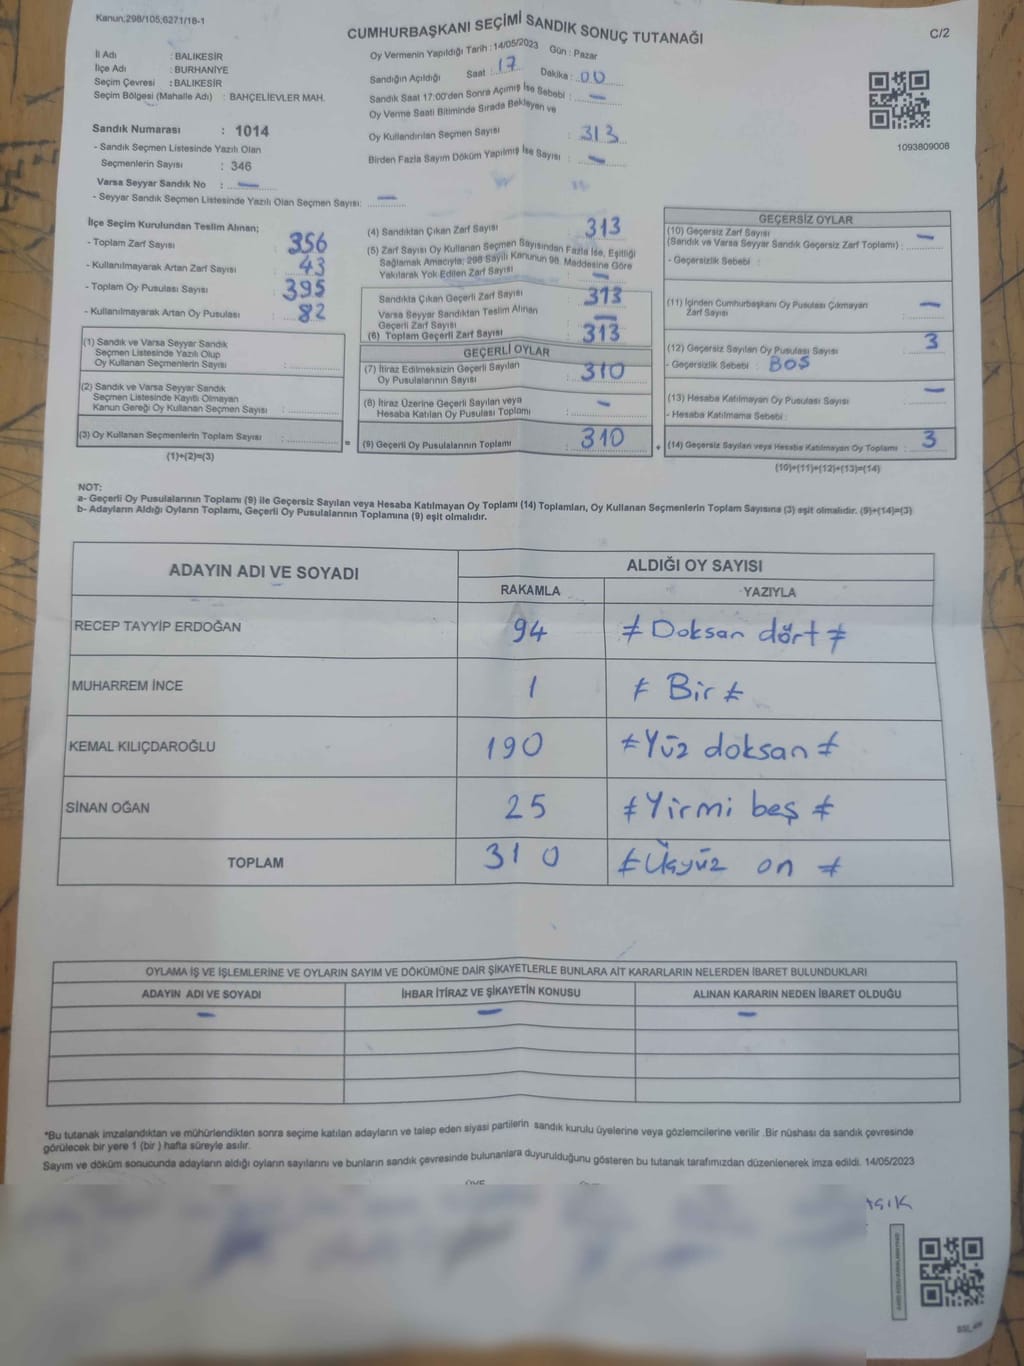 Kanun;298/105,6271/18-1
CUMHURBAŞKANI SEÇİMİ SANDIK SONUÇ TUTANAĞI
C/2
İl Adı : BALIKESİR
İlçe Adı : BURHANİYE
Seçim Çevresi : BALIKESİR
Seçim Bölgesi (Mahalle Adı) : BAHÇELİEVLER MAH.
Sandık Numarası : 1014
- Sandık Seçmen Listesinde Yazılı Olan
Seçmenlerin Sayısı : 346
Varsa Seyyar Sandık No : —
- Seyyar Sandık Seçmen Listesinde Yazılı Olan Seçmen Sayısı: —
Oy Vermenin Yapıldığı Tarih : 14/05/2023 Gün : Pazar
Sandığın Açıldığı Saat : 17 Dakika : 00
Sandık Saat 17:00'den Sonra Açımış İse Sebebi : —
Oy Verme Saati Bitiminde Sırada Bekleyen ve
Oy Kullandırılan Seçmen Sayısı : 313
Birden Fazla Sayım Döküm Yapılmış İse Sayısı : —
1093809008
İlçe Seçim Kurulundan Teslim Alınan;
- Toplam Zarf Sayısı : 356
- Kullanılmayarak Artan Zarf Sayısı : 43
- Toplam Oy Pusulası Sayısı : 395
- Kullanılmayarak Artan Oy Pusulası : 82
(1) Sandık ve Varsa Seyyar Sandık
Seçmen Listesinde Yazılı Olup
Oy Kullanan Seçmenlerin Sayısı :
(2) Sandık ve Varsa Seyyar Sandık
Seçmen Listesinde Kayıtlı Olmayan
Kanun Gereği Oy Kullanan Seçmen Sayısı :
(3) Oy Kullanan Seçmenlerin Toplam Sayısı :
(1)+(2)=(3)
(4) Sandıktan Çıkan Zarf Sayısı 313
(5) Zarf Sayısı Oy Kullanan Seçmen Sayısından Fazla İse, Eşitliği
Sağlamak Amacıyla; 298 Sayılı Kanunun 98. Maddesine Göre
Yakılarak Yok Edilen Zarf Sayısı : —
Sandıkta Çıkan Geçerli Zarf Sayısı 313
Varsa Seyyar Sandıktan Teslim Alınan
Geçerli Zarf Sayısı —
(6) Toplam Geçerli Zarf Sayısı 313
GEÇERLİ OYLAR
(7) İtiraz Edilmeksizin Geçerli Sayılan
Oy Pusulalarının Sayısı : 310
(8) İtiraz Üzerine Geçerli Sayılan veya
Hesaba Katılan Oy Pusulası Toplamı : —
=
(9) Geçerli Oy Pusulalarının Toplamı : 310
+
GEÇERSİZ OYLAR
(10) Geçersiz Zarf Sayısı
(Sandık ve Varsa Seyyar Sandık Geçersiz Zarf Toplamı) : —
- Geçersizlik Sebebi :
(11) İçinden Cumhurbaşkanı Oy Pusulası Çıkmayan
Zarf Sayısı —
(12) Geçersiz Sayılan Oy Pusulası Sayısı 3
- Geçersizlik Sebebi : BOŞ
(13) Hesaba Katılmayan Oy Pusulası Sayısı —
- Hesaba Katılmama Sebebi :
(14) Geçersiz Sayılan veya Hesaba Katılmayan Oy Toplamı : 3
(10)+(11)+(12)+(13)=(14)
NOT:
a- Geçerli Oy Pusulalarının Toplamı (9) ile Geçersiz Sayılan veya Hesaba Katılmayan Oy Toplamı (14) Toplamları, Oy Kullanan Seçmenlerin Toplam Sayısına (3) eşit olmalıdır. (9)+(14)=(3)
b- Adayların Aldığı Oyların Toplamı, Geçerli Oy Pusulalarının Toplamına (9) eşit olmalıdır.
ADAYIN ADI VE SOYADI
ALDIĞI OY SAYISI
RAKAMLA YAZIYLA
RECEP TAYYİP ERDOĞAN 94 ≠ Doksan dört ≠
MUHARREM İNCE 1 ≠ Bir ≠
KEMAL KILIÇDAROĞLU 190 ≠ Yüz doksan ≠
SİNAN OĞAN 25 ≠ Yirmi beş ≠
TOPLAM 310 ≠ Üçyüz on ≠
OYLAMA İŞ VE İŞLEMLERİNE VE OYLARIN SAYIM VE DÖKÜMÜNE DAİR ŞİKAYETLERLE BUNLARA AİT KARARLARIN NELERDEN İBARET BULUNDUKLARI
ADAYIN ADI VE SOYADI İHBAR İTİRAZ VE ŞİKAYETİN KONUSU ALINAN KARARIN NEDEN İBARET OLDUĞU
— — —
*Bu tutanak imzalandıktan ve mühürlendikten sonra seçime katılan adayların ve talep eden siyasi partilerin sandık kurulu üyelerine veya gözlemcilerine verilir .Bir nüshası da sandık çevresinde
görülecek bir yere 1 (bir ) hafta süreyle asılır.
Sayım ve döküm sonucunda adayların aldığı oyların sayılarını ve bunların sandık çevresinde bulunanlara duyurulduğunu gösteren bu tutanak tarafımızdan düzenlenerek imza edildi. 14/05/2023